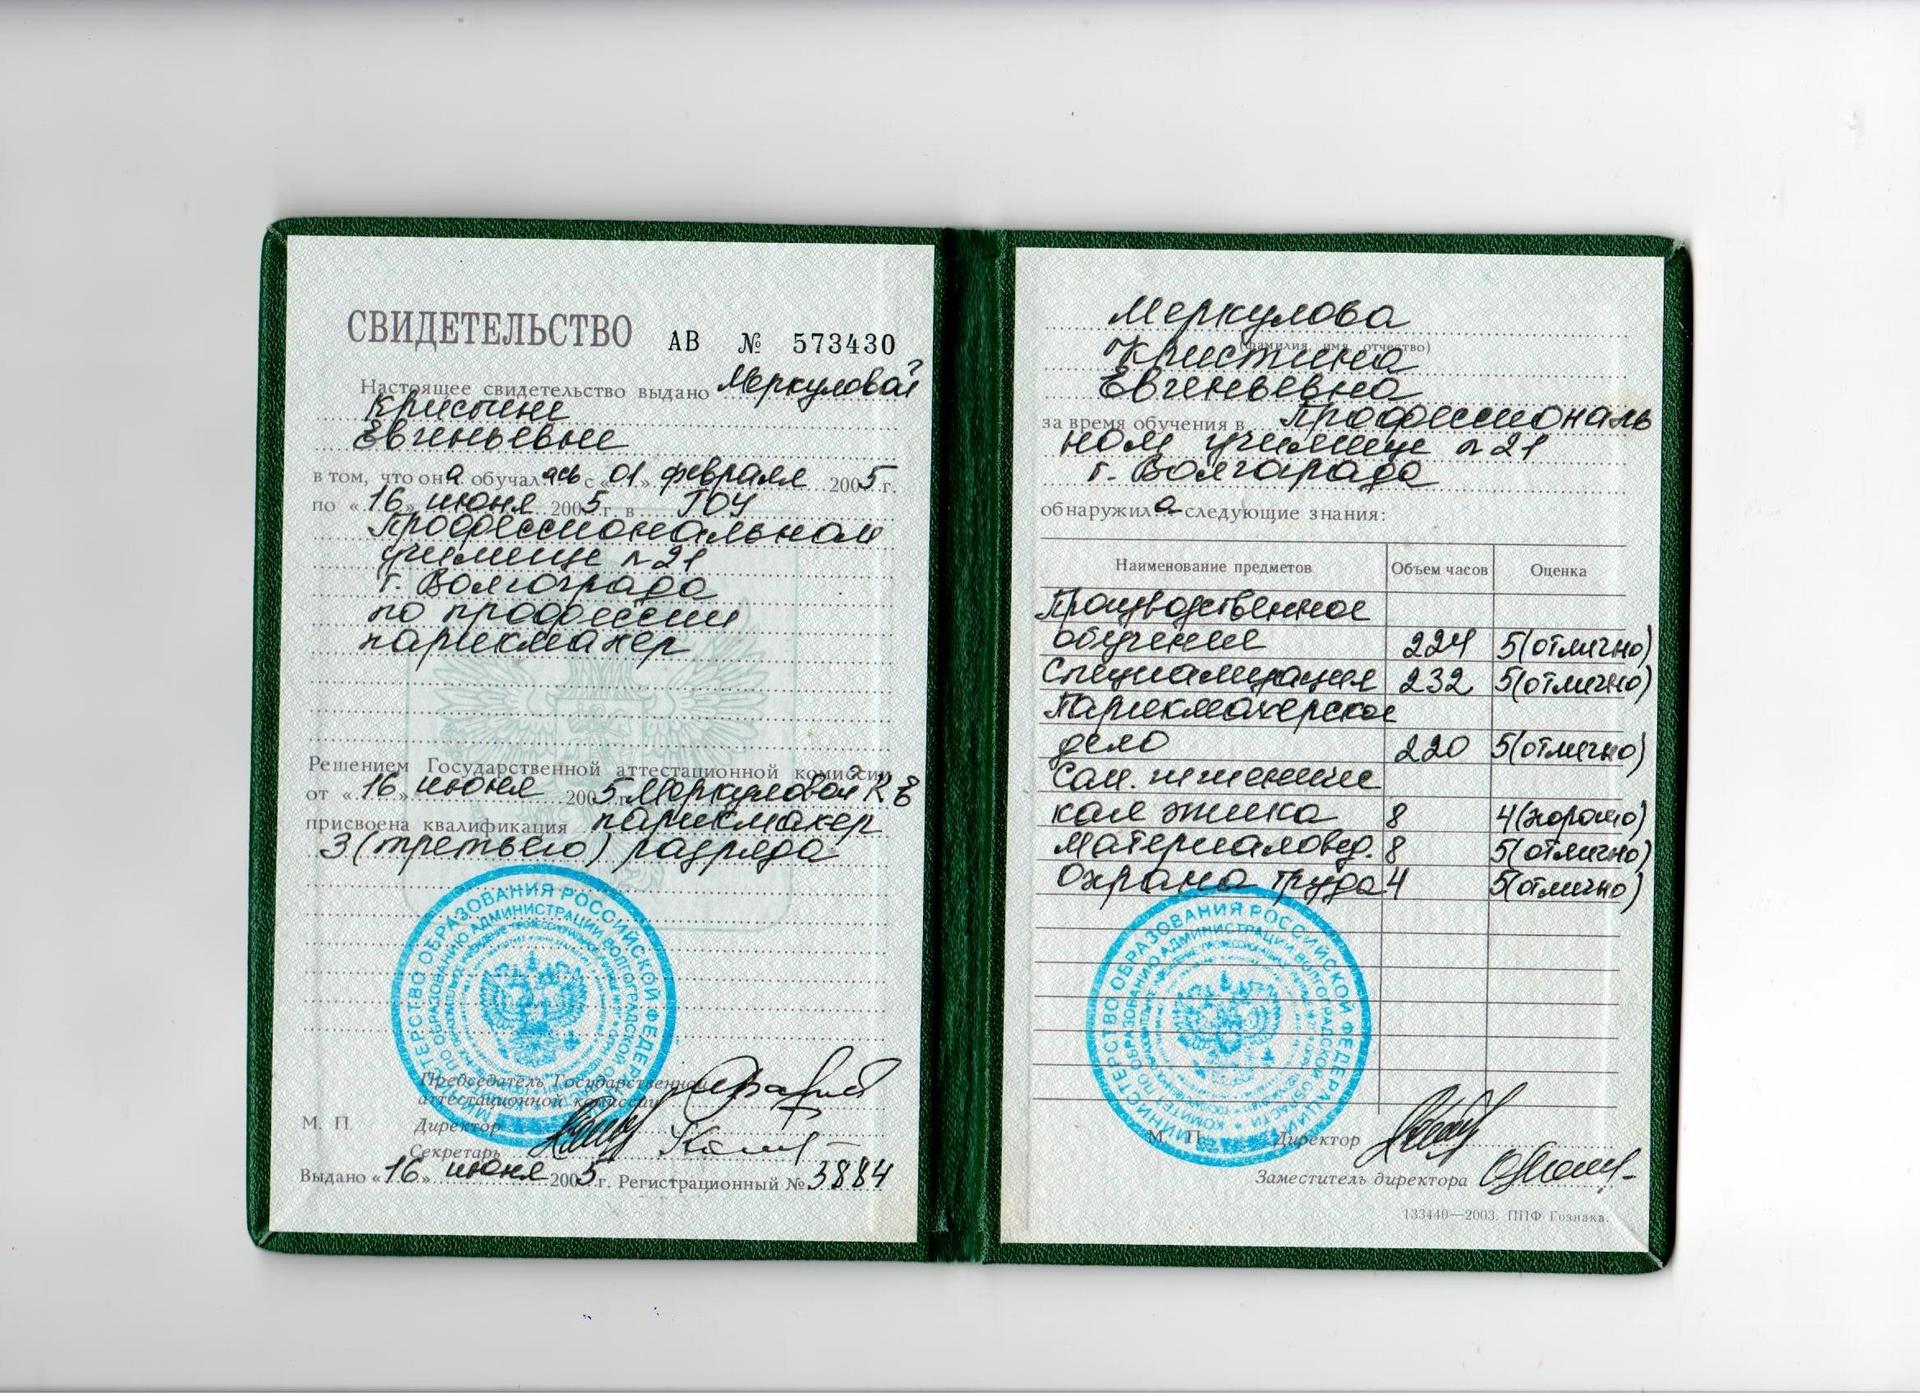 СВИДЕТЕЛЬСТВО АВ № 573430
Настоящее свидетельство выдано Меркуловой
Кристине
Евгеньевне
в том, что она обучалась с «01» февраля 2005 г.
по «16» июня 2005 г. в ГОУ
Профессиональном
училище №21
г. Волгограда
по профессии
парикмахер
Решением Государственной аттестационной комиссии
от «16» июня 2005 Меркуловой К Е
присвоена квалификация парикмахер
3 (третьего) разряда
МИНИСТЕРСТВО ОБРАЗОВАНИЯ РОССИЙСКОЙ ФЕДЕРАЦИИ
Председатель Государственной
аттестационной комиссии
М. П. Директор
Секретарь
Выдано «16» июня 2005 г. Регистрационный № 3884
Меркулова
(фамилия, имя, отчество)
Кристина
Евгеньевна
за время обучения в Профессиональ
ном училище №21
г. Волгограда
обнаружила следующие знания:
Наименование предметов Объем часов Оценка
Производственное
обучение 224 5(отлично)
Специализация 232 5(отлично)
Парикмахерское
дело 220 5(отлично)
кая этика 8 4(хорошо)
Материаловед. 8 5(отлично)
Охрана труда 4 5(отлично)
МИНИСТЕРСТВО ОБРАЗОВАНИЯ РОССИЙСКОЙ ФЕДЕРАЦИИ
М. П. Директор
Заместитель директора
133440—2003. ППФ Гознака.